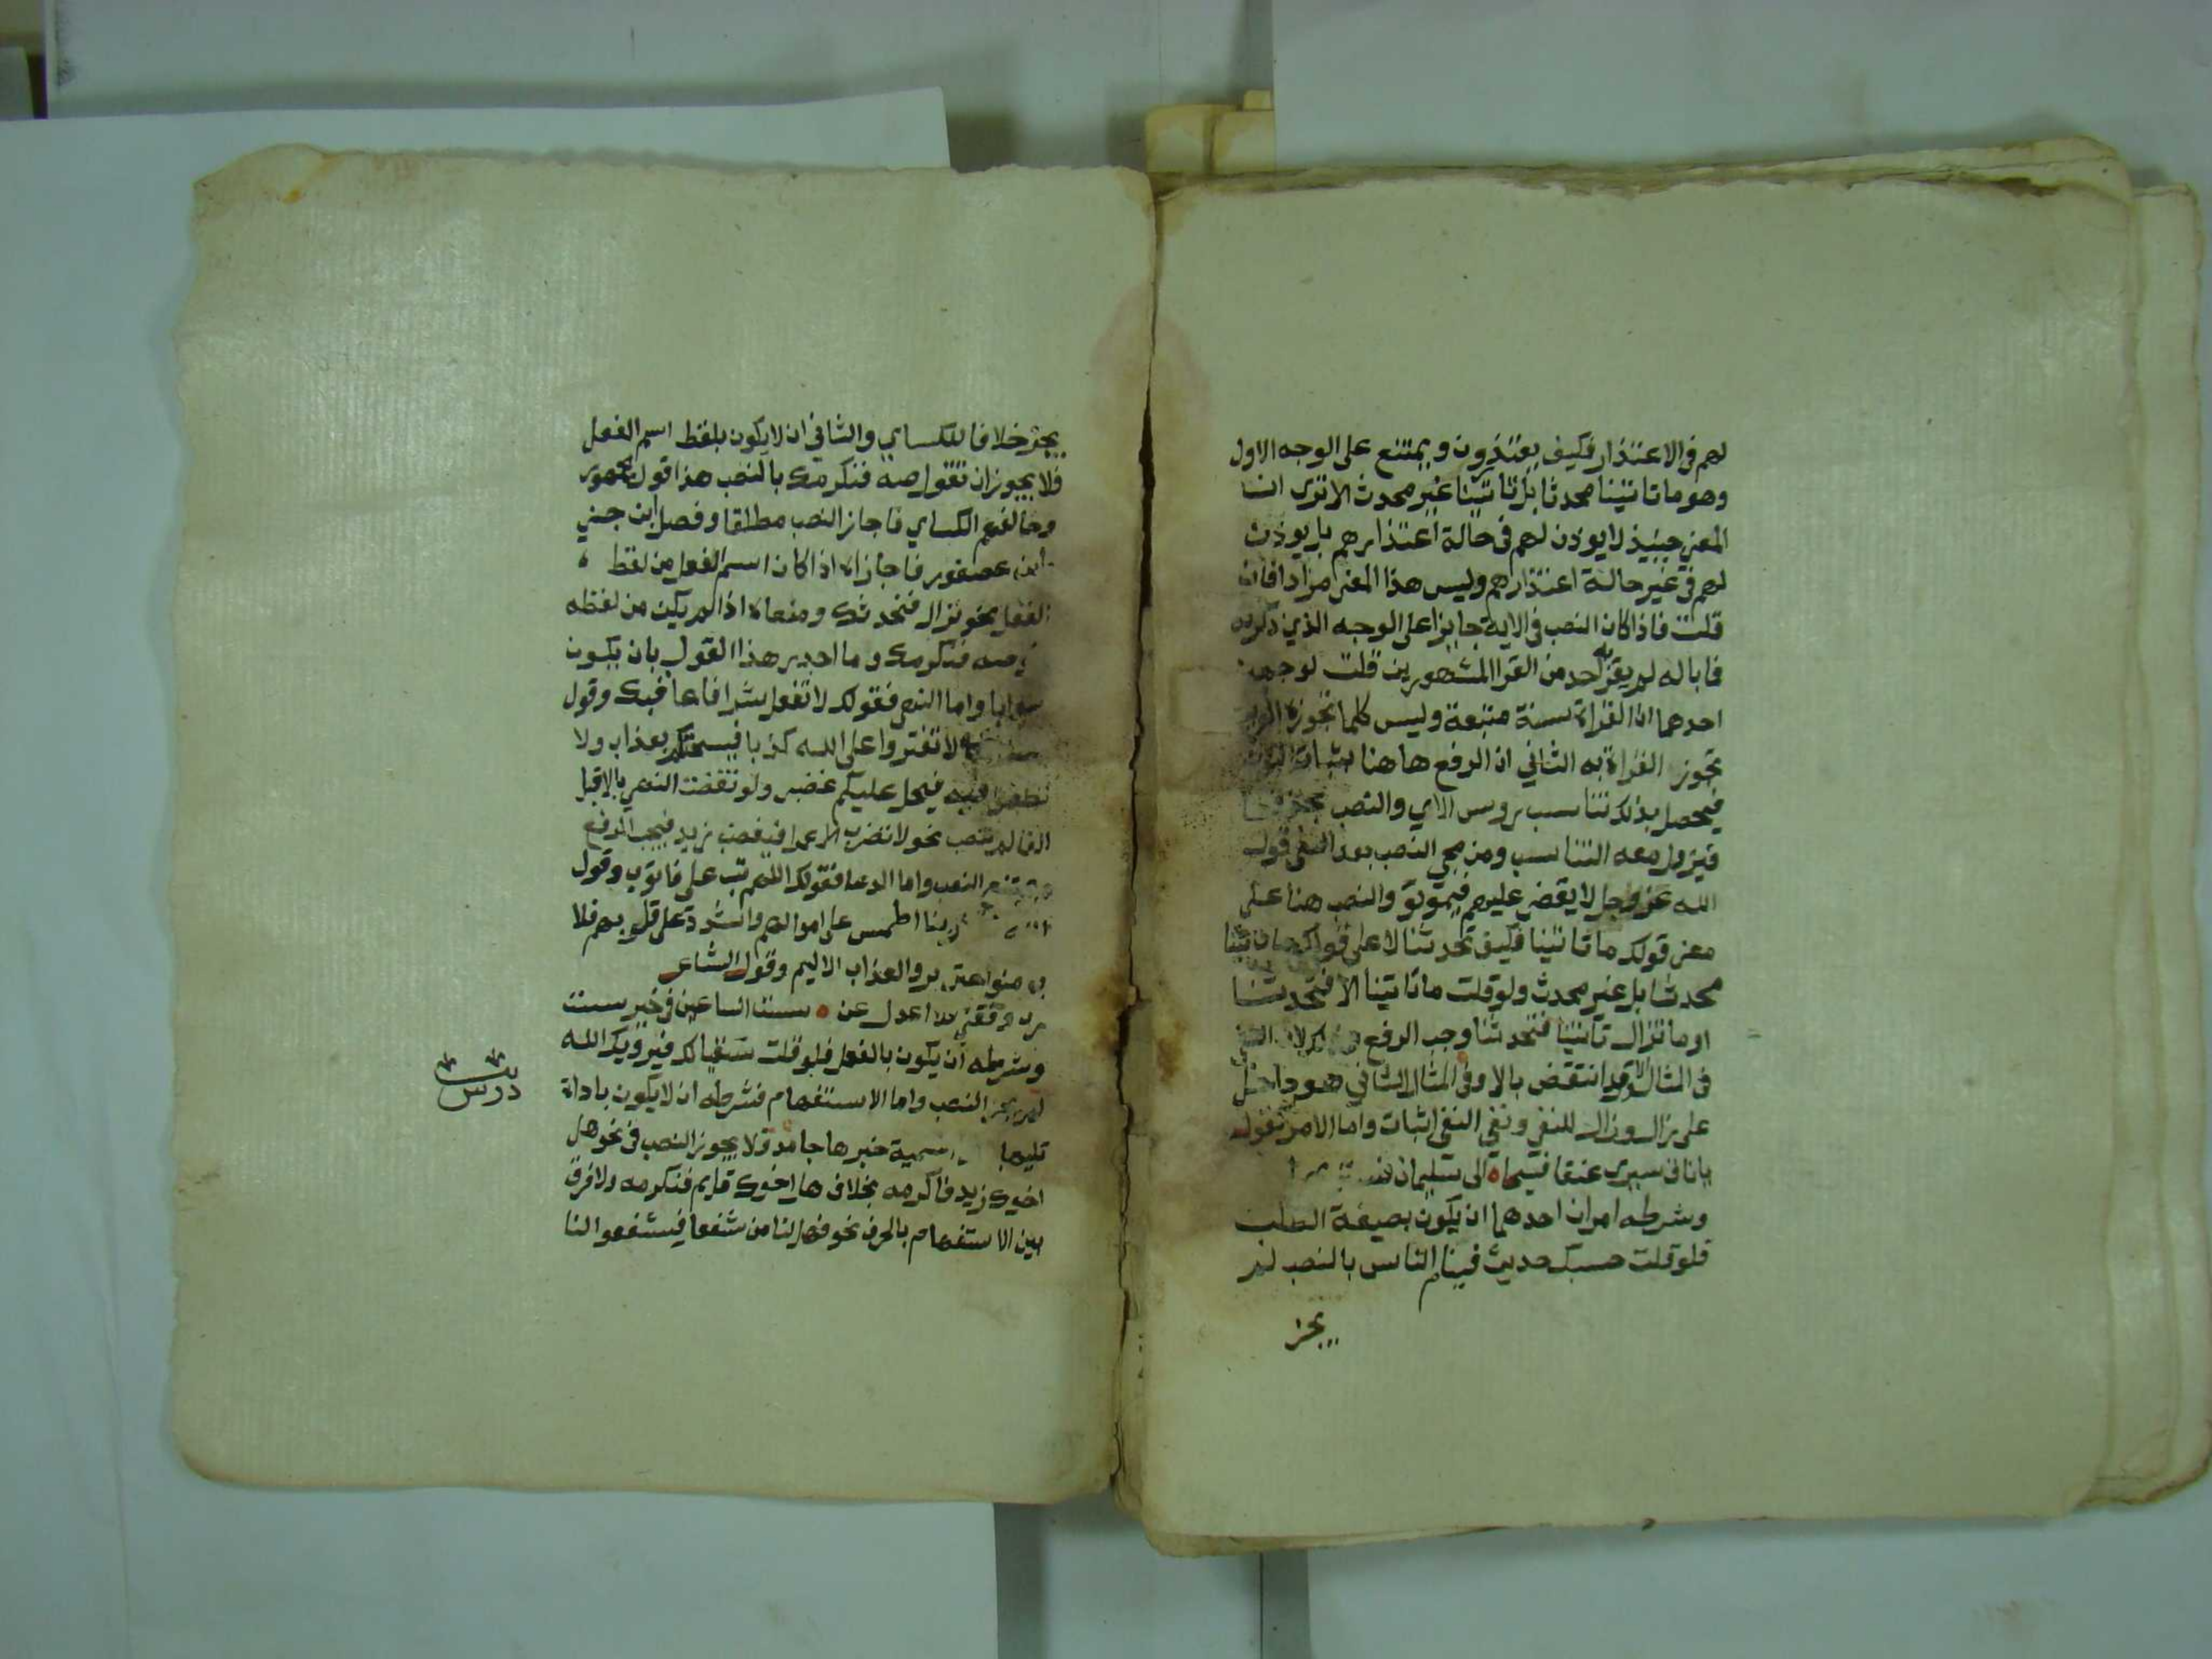 لهم في الاعتذار فكيف يعتذرون ويمتنع على الوجه الاول
وهو ما تاتينا محدثا بل تاتينا غير محدث الا ترى ان
المعني حينيذ لا يوذن لهم في حالة اعتذارهم بل يوذن
لهم في غير حالة اعتذارهم وليس هذا المعنى مرادا فان
قلت فاذا كان النصب في الاية جايزا على الوجه الذي ذكرته
فما باله لم يقرا به احد من القرا المشهورين قلت لوجهين
احدهما ان القراة سنة متبعة وليس كلما تجوزه العربية
تجوز القراة به الثاني ان الرفع هاهنا بثبات النون
فيحصل بذلك تناسب روس الاي والنصب بحذفها
فيزول معه التناسب ومن مجي النصب بعد النفي قول
الله عز وجل لا يقضى عليهم فيموتو والنصب هنا على
معنى قولك ما تاتينا فكيف تحدثنا لا على قولك ما تاتينا
محدثا بل غير محدث ولو قلت ما تاتينا الا فتحدثنا
او ما تزال تاتينا فتحدثنا وجب الرفع وذلك لان النفي
في المثال الاول قد انتقض بالا وفي المثال الثاني هو داخل
على زال وزال للنفي ونفي النفي اثبات واما الامر فقول
يا ناق سيري عنقا فسيحا ه الى سليمان
وشرطه امران احدهما ان يكون بصيغة الطلب
فلو قلت حسبك حديث فينام الناس بالنصب لم
يجز
يجز خلافا للكساي والثاني ان لا يكون بلفظ اسم الفعل
فلا يجوز ان تقول صه فنكرمك بالنصب هذا قول الجمهور
وخالفهم الكساي فاجاز النصب مطلقا وفصل ابن جني
وابن عصفور فاجازاه اذا كان اسم الفعل من لفظ
الفعل نحو نزال فنحدثك ومنعاه اذا لم يكن من لفظه
صه فنكرمك وما اجدر هذا القول بان يكون
صوابا واما النهي فقولك لا تفعل شرا فاعاقبك وقول
لا تفتروا على الله كذبا فيسحتكم بعذاب ولا
تطغوا فيه فيحل عليكم غضبى ولو نقضت النهي بالا قبل
الفا لم تنصب نحو لا تضرب الا عمرا فيغضب زيد فيجب الرفع
النصب واما الدعا فقولك اللهم تب علي فاتوب وقول
ربنا اطمس على اموالهم واشدد على قلوبهم فلا
يومنوا حتى يروا العذاب الاليم وقول الشاعر
رب وفقني فلا اعدل عن ه سنن الساعين في خير سنن
وشرطه ان يكون بالفعل فلو قلت سقيا لك فيرويك الله
لم يجز النصب واما الاستفهام فشرطه ان لا يكون باداة
تليها اسمية خبرها جامد فلا يجوز النصب في نحو هل
اخوك زيد فاكرمه بخلاف هل اخوك قايم فنكرمه ولا فرق
بين الاستفهام بالحرف نحو فهل لنا من شفعا فيشفعوا لنا
درس